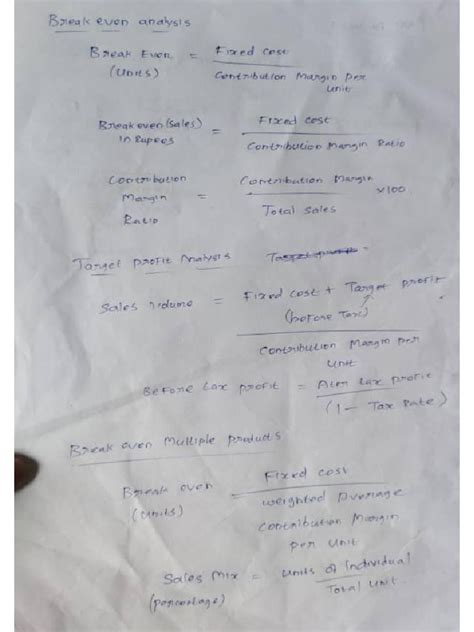 Break even analysis
Break Even (units) = Fixed cost / Contribution Margin per unit
Break even (sales) in Rupees = Fixed cost / Contribution Margin Ratio
Contribution Margin Ratio = Contribution Margin / Total Sales x100
Target profit Analysis
Sales volume = Fixed cost + Target profit (before Tax) / Contribution Margin per unit
Before tax profit = After tax profit / (1 - Tax Rate)
Break even Multiple products
Break even (units) = Fixed cost / weighted Average contribution Margin per unit
Sales Mix (percentage) = units of individual / Total unit.